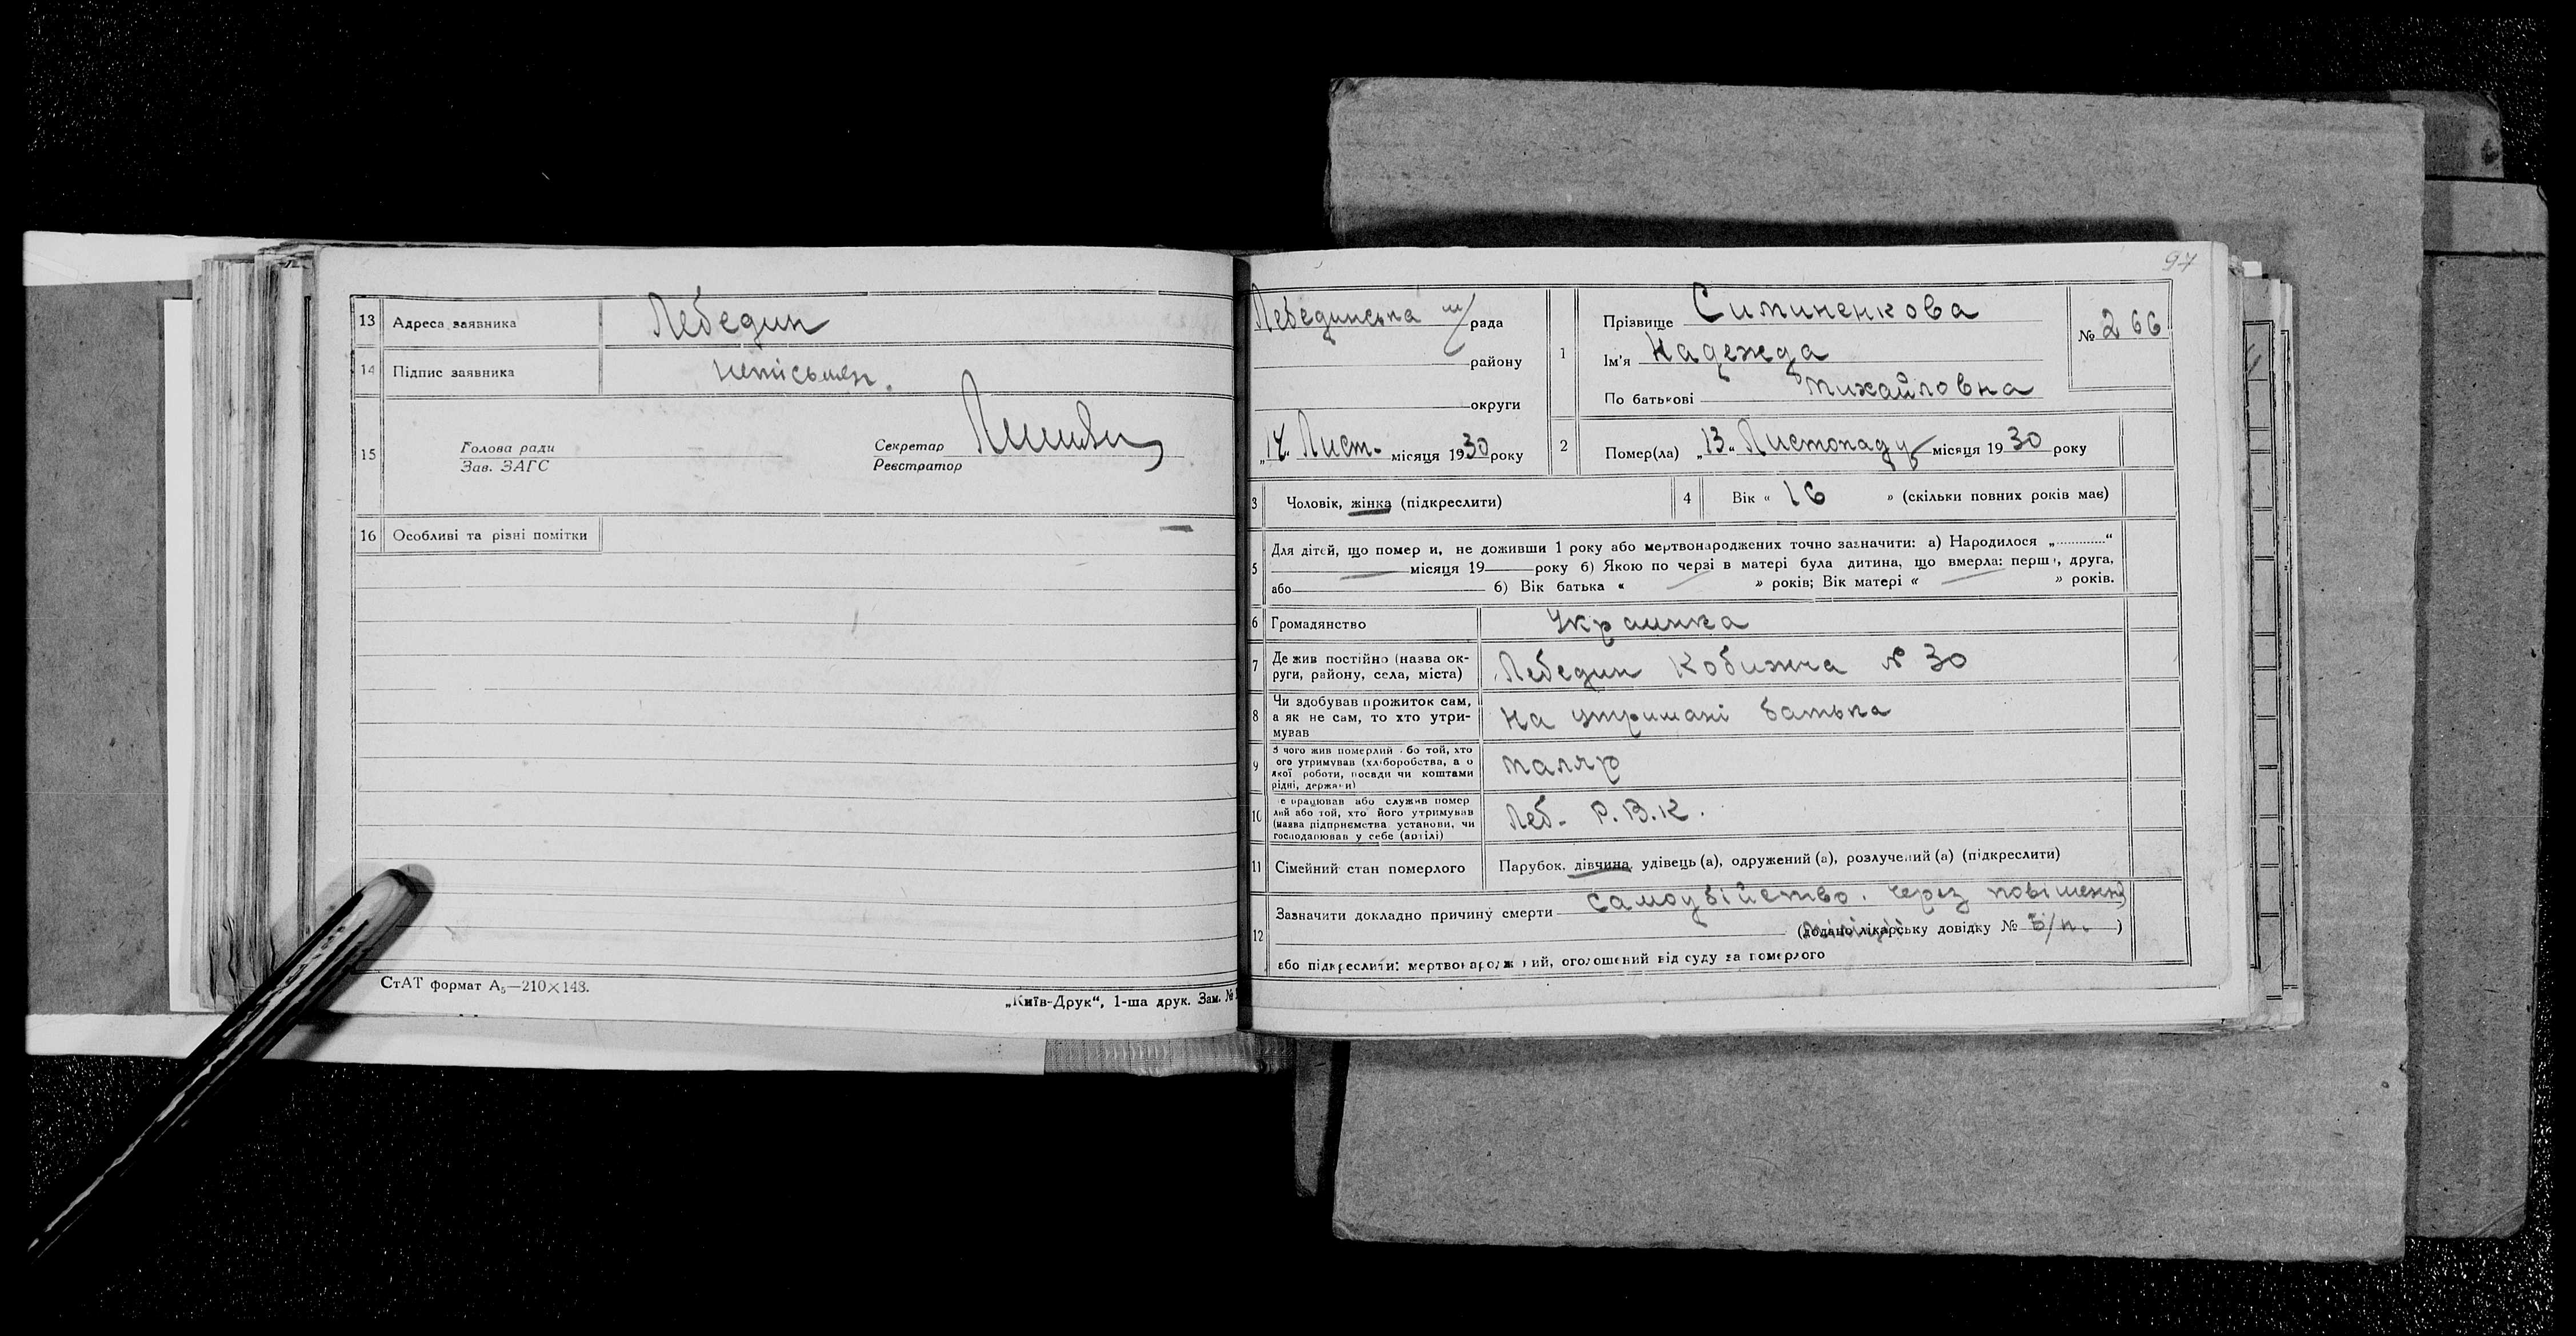 13 Адреса заявника Лебедин
14 Підпис заявника неписьмен.
15 Голова ради
Зав. ЗАГС
Секретар
Реєстратор
16 Особливі та різні помітки
СтАТ формат А₅—210×148.
„Київ-Друк“, 1-ша друк. Зам. №
97
Лебединська м/рада
району
округи
„14“ Лист. місяця 1930 року
1 Прізвище Симиненкова
Ім'я Надежда
По батькові Михайловна
№ 266
2 Помер(ла) „13“ Листопаду місяця 1930 року
3 Чоловік, жінка (підкреслити)
4 Вік « 16 » (скільки повних років має)
5 Для дітей, що помер и, не доживши 1 року або мертвонароджених точно зазначити: а) Народилося „............“
місяця 19 року б) Якою по черзі в матері була дитина, що вмерла: перш , друга,
або б) Вік батька « » років; Вік матері « » років.
6 Громадянство Украинка
7 Де жив постійно (назва ок-
руги, району, села, міста) Лебедин Кобижча № 30
8 Чи здобував прожиток сам,
а як не сам, то хто утри-
мував На утримані батька
9 З чого жив померлий бо той, хто
ого утримував (хліборобства, а о
якої роботи, посади чи коштами
рідні, держави) маляр
10 е працював або служив помер
лий або той, хто його утримував
(назва підприємства установи, чи
господарював у себе (артілі) Леб. Р.В.К.
11 Сімейний стан померлого Парубок, дівчина, удівець (а), одружений (а), розлучений (а) (підкреслити)
12 Зазначити докладно причину смерти самоубійство. через повішення
(додано лікарську довідку № Б/н. )
або підкреслити: мертвонароджений, оголошений від суду за померлого